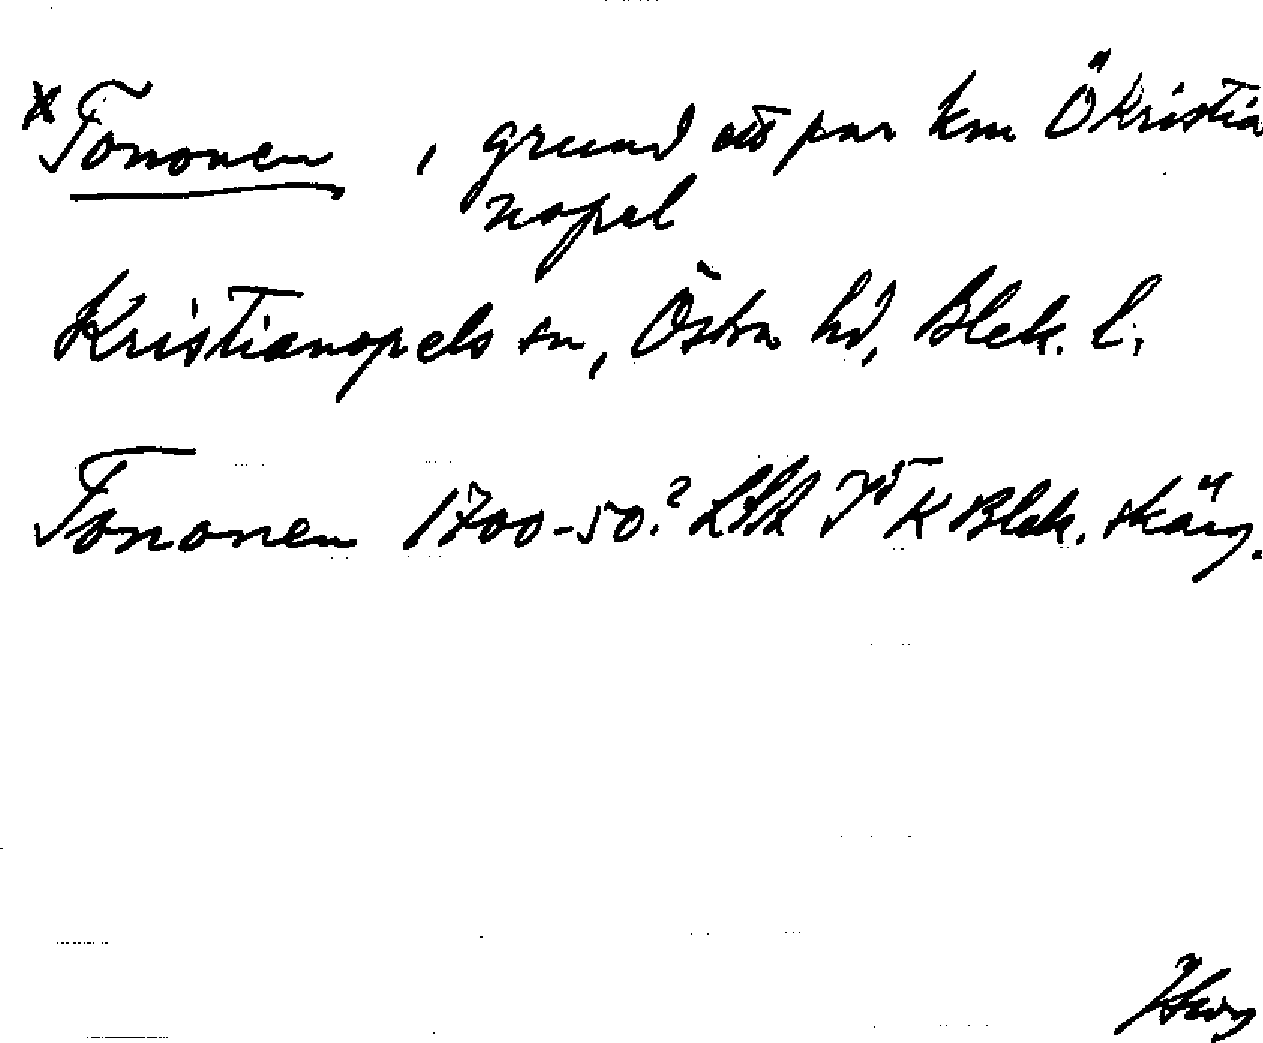 x Tononen, grund ett par km Ö Kristia
nopel
Kristianopels sn, Östra hd, Blek. l.
Tononen 1700-50? K Blek. skärg.